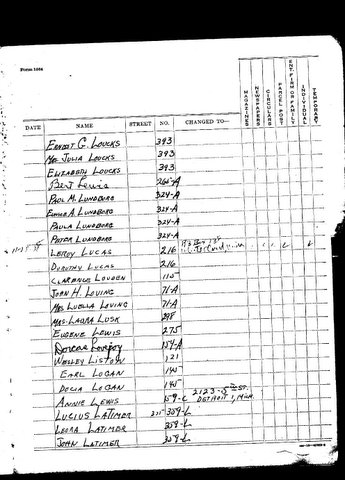 Form 1564
DATE NAME STREET NO. CHANGED TO— MAGAZINES NEWSPAPERS CIRCULARS PARCEL POST ENT. FIRM OR FAMILY INDIVIDUAL TEMPORARY
ERNEST G. LOUCKS 393
MRS JULIA LOUCKS 393
ELIZABETH LOUCKS 393
Bert Lewis 266-A
PAUL M. LUNDBERG 324-A
EMMA A LUNDBERG 324-A
PAULA LUNDBERG 324-A
PETER LUNDBERG 324-A
LEROY LUCAS 216
DOROTHY LUCAS 216
CLARENCE LOUDEN 115
JOHN H. LOVING 71-A
MRS LUELLA LOVING 71-A
MRS. LAURA LUSK 298
EUGENE LEWIS 275
Dorcas Lovejoy 159-A
WESLEY LISTON 121
EARL LOGAN 145
DELIA LOGAN 145
ANNIE LEWIS 159-C 2123-5TH ST. DETROIT 1, MICH.
LUCIUS LATIMER 359-L
LEORA LATIMER 359-L
JOHN LATIMER 359-L